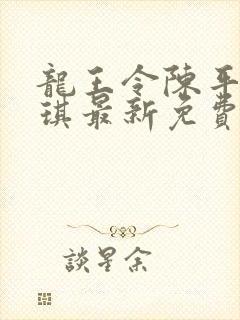 龍王令陳平
琪最新免費
談星余